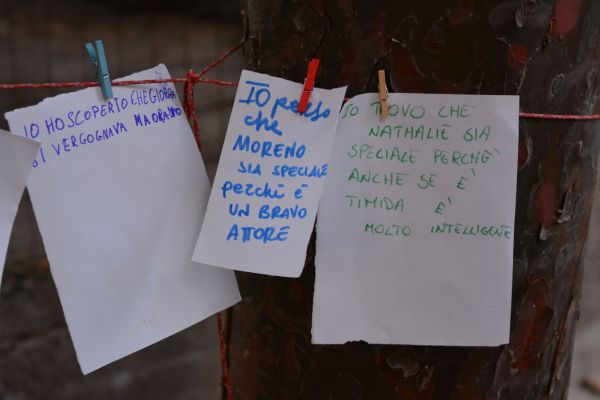 IO HO SCOPERTO CHE GIORGIA
SI VERGOGNAVA MA ORA NO
IO penso
che
MORENO
SIA SPECIALE
perchè è
UN BRAVO
ATTORE
IO TROVO CHE
NATHALIE SIA
SPECIALE PERCHE'
ANCHE SE E'
TIMIDA E'
MOLTO INTELLIGENTE